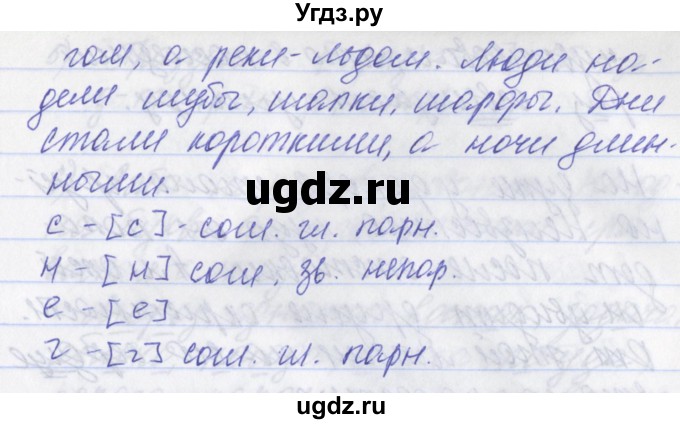 Угдз.ру
гом, а реки-льдом. Люди на-
дели шубы, шапки, шарфы. Дни
стали короткими, а ночи длин-
ными.
ugdz.ru
с - [с] - согл. гл. парн.
н - [н] согл. зв. непар.
е - [е]
г - [г] согл. гл. парн.
ugdz.ru